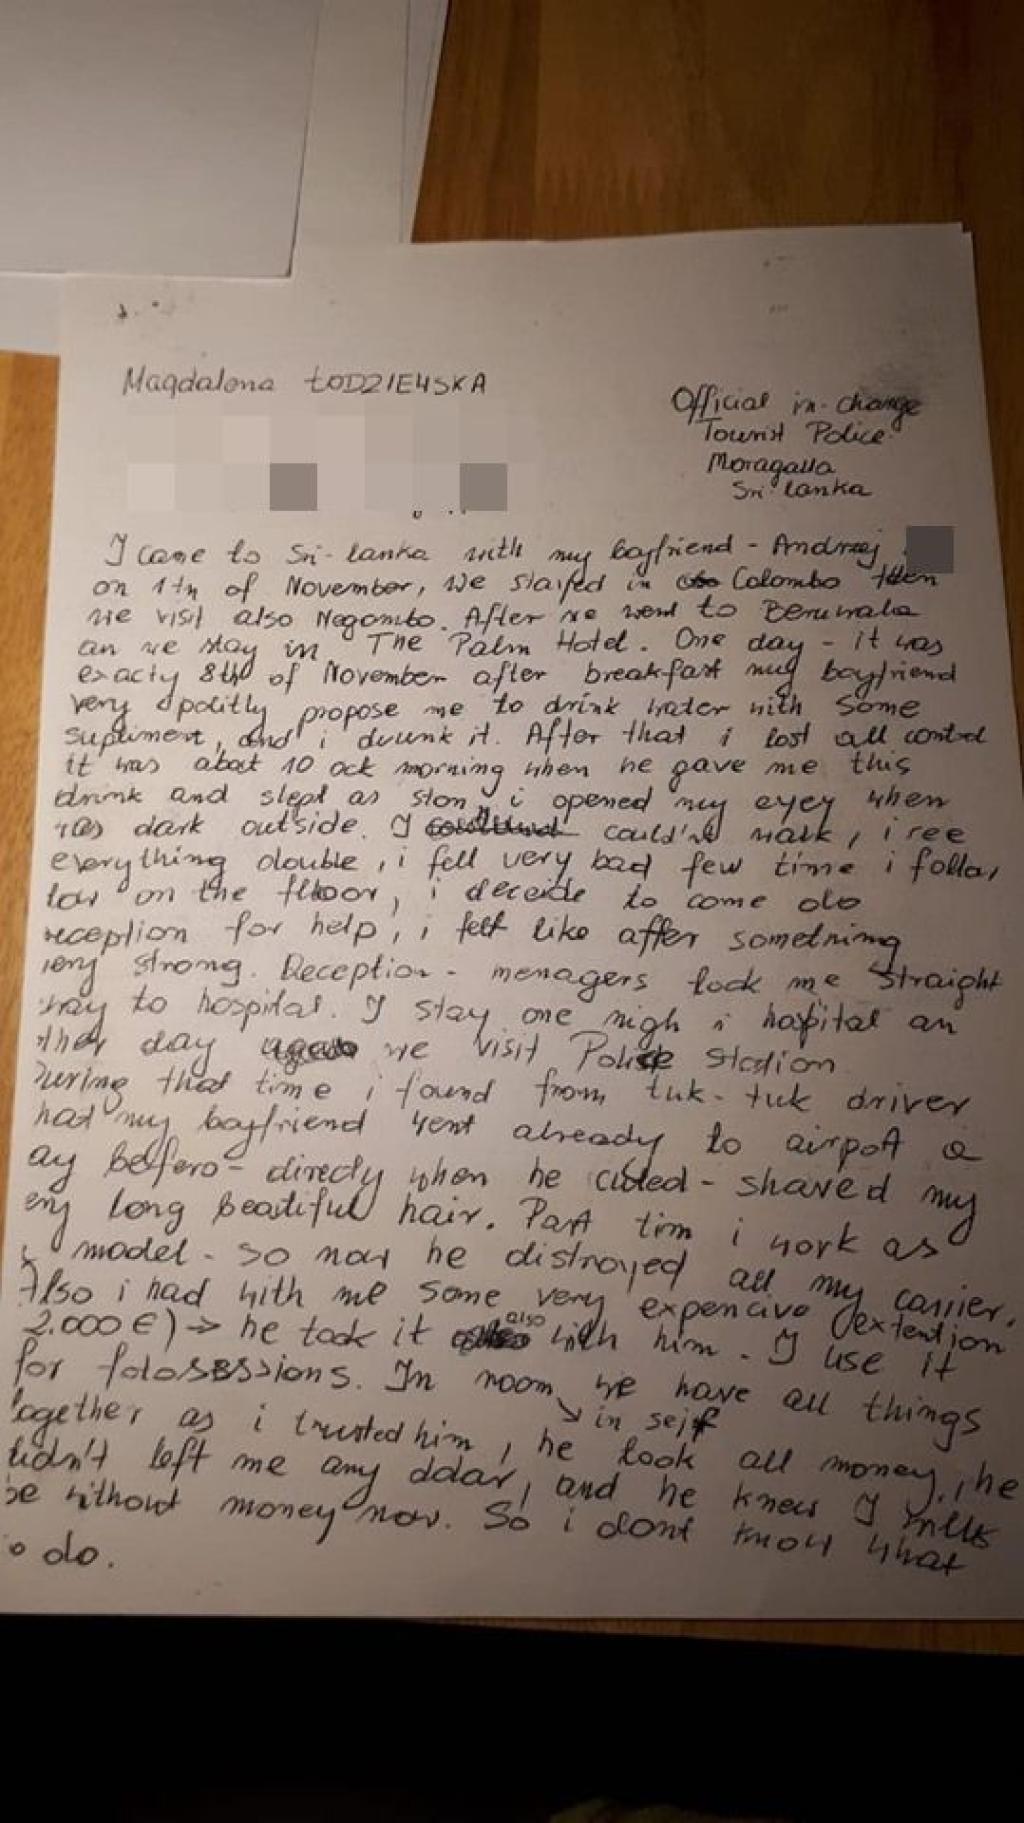 Magdalena ŁODZIEWSKA
Official in-change
Tourist Police
Moragalla
Sri lanka
I came to Sri-lanka with my boyfriend - Andrzej
on 1th of November, we staifed in Colombo then
we visit also Negombo. After we went to Beruwala
an we stay in The Palm Hotel. One day - it was
exacty 8th of November after breakfast my boyfriend
very politly propose me to drink water with some
supliment, and i drunk it. After that i lost all control
it was about 10 ock morning when he gave me this
drink and slept as ston, i opened my eyey when
was dark outside. I could'nt walk, i see
everything double, i fell very bad few time i
low on the floor, i decide to come do
reception for help, i felt like after something
very strong. Reception - menagers took me straight
way to hospital. I stay one nigh i hospital an
ther day we visit Police Stadion
During that time i found from tuk-tuk driver
hat my boyfriend went already to airport a
ay belfero - directly when he cuted - shaved my
ery long beautiful hair. Part tim i work as
model - so now he distroyed all my carrier.
Also i had with me some very expencive (extention
2.000 €) → he took it also with him. I use it
for fotosessions. In room we have all things
in sejf
together as i trusted him, he took all money, he
didn't left me any dolar, and he knew I
be without money now. So i dont know what
o do.